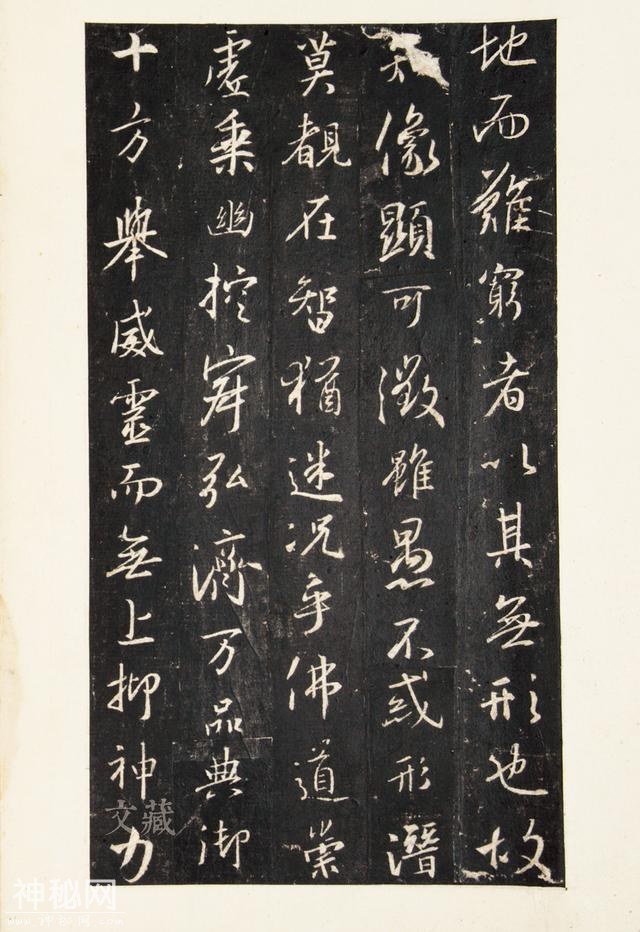 地而難窮者以其無形也故
知像顯可徵雖愚不惑形潛
莫覩在智猶迷況乎佛道崇
虛乘幽控寂弘濟万品典御
十方舉威靈而無上抑神力
文藏
神秘网